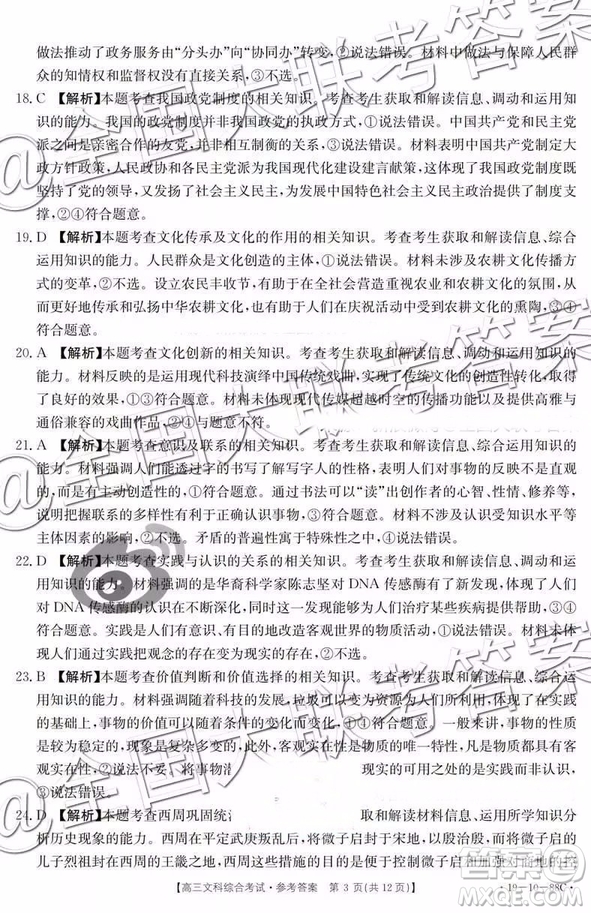 做法推动了政务服务由“分头办”向“协同办”转变，②说法错误。材料中的做法与保障人民群
众的知情权和监督权没有直接关系，③不选。
18. C 【解析】本题考查我国政党制度的相关知识。考查考生获取和解读信息、调动和运用知
识的能力。我国的政党制度并非民主党派的执政方式，①说法错误。中国共产党和民主党
派之间是亲密合作的友党，并非相互制衡的关系，③说法错误。材料表明中国共产党制定大
政方针政策，人民政协和各民主党派为我国现代化建设建言献策，发挥了积极作用，这既
坚持了党的领导，又发扬了社会主义民主，为发展中国特色社会主义民主政治提供了政治
保障，②④符合题意。
19. D 【解析】本题考查文化传承及文化的作用的相关知识。考查考生获取和解读信息、综合
运用知识的能力。人民群众是文化的创造主体，①说法错误。材料未涉及农耕文化传播方
式的变革，②不选。设立农民丰收节，有利于在全社会营造重视农业和农耕文化的氛围，从
而更好地传承和弘扬中华农耕文化，也有助于人们在庆祝活动中受到农耕文化的熏陶，③④
符合题意。
20. A 【解析】本题考查文化创新的相关知识。考查考生获取和解读信息、调动和运用知识的
能力。材料反映的是运用现代科技演绎中国传统戏曲，实现了传统文化的创造性转化，取得
了良好的效果，①③符合题意。材料未体现现代传媒超越时空的传播功能以及提供高雅与
通俗兼容的戏曲作品，②④与题意不符。
21. A 【解析】本题考查意识及联系的相关知识。考查考生获取和解读信息、综合运用知识的
能力。材料强调人们能透过笔迹认识书写字人的性格，表明人们对事物的反映不是直观
的，而是有主动创造性的，①说法正确。通过书法可以“读”出创作者的心智、性情、修养等，
说明把握联系的多样性有利于人们正确认识事物，③符合题意。材料未强调联系的建立与
主体因素的影响，②不选。矛盾的普遍性寓于特殊性之中，④说法错误。
22. D 【解析】本题考查实践与认识的关系的相关知识。考查考生获取和解读信息、调动和运
用知识的能力。材料强调的是华裔科学家陈志坚对 DNA 传感酶有了新发现，体现了人们
对 DNA 传感酶的认识在不断深化，同时，这一发现能够为人们治疗某些疾病提供帮助，③④
符合题意。实践是人们有意识、有目的地改造客观世界的物质活动，①说法错误。材料未体
现人们通过实践把观念的存在变为现实的存在，②不选。
23. B 【解析】本题考查价值判断和价值选择的相关知识。考查考生获取和解读信息、综合运
用知识的能力。材料强调随着科技的发展，垃圾可以变为可利用的资源，这表明在实践
的基础上，事物的价值可以变化而变化，①④符合题意。一般来讲，事物的本质是
较为稳定的，现象是复杂多变的，因此，在实践中不断变化的一般不是事物的本质而是现
象，②说法不妥。将事物 现实的可用之处的是实践而非认识，
③说法错误。
24. D 【解析】本题考查西周巩固统 取和解读材料信息、运用所学知识分
析历史现象的能力。西周在平定武庚叛乱后，将微子启封于宋地，以后殷后，而将微子启的
儿子烈祖封于西周的王畿之地，
高三文科综合考试·参考答案 第 3 页(共 12 页)
·19-10-88C·
@全国大联考答案